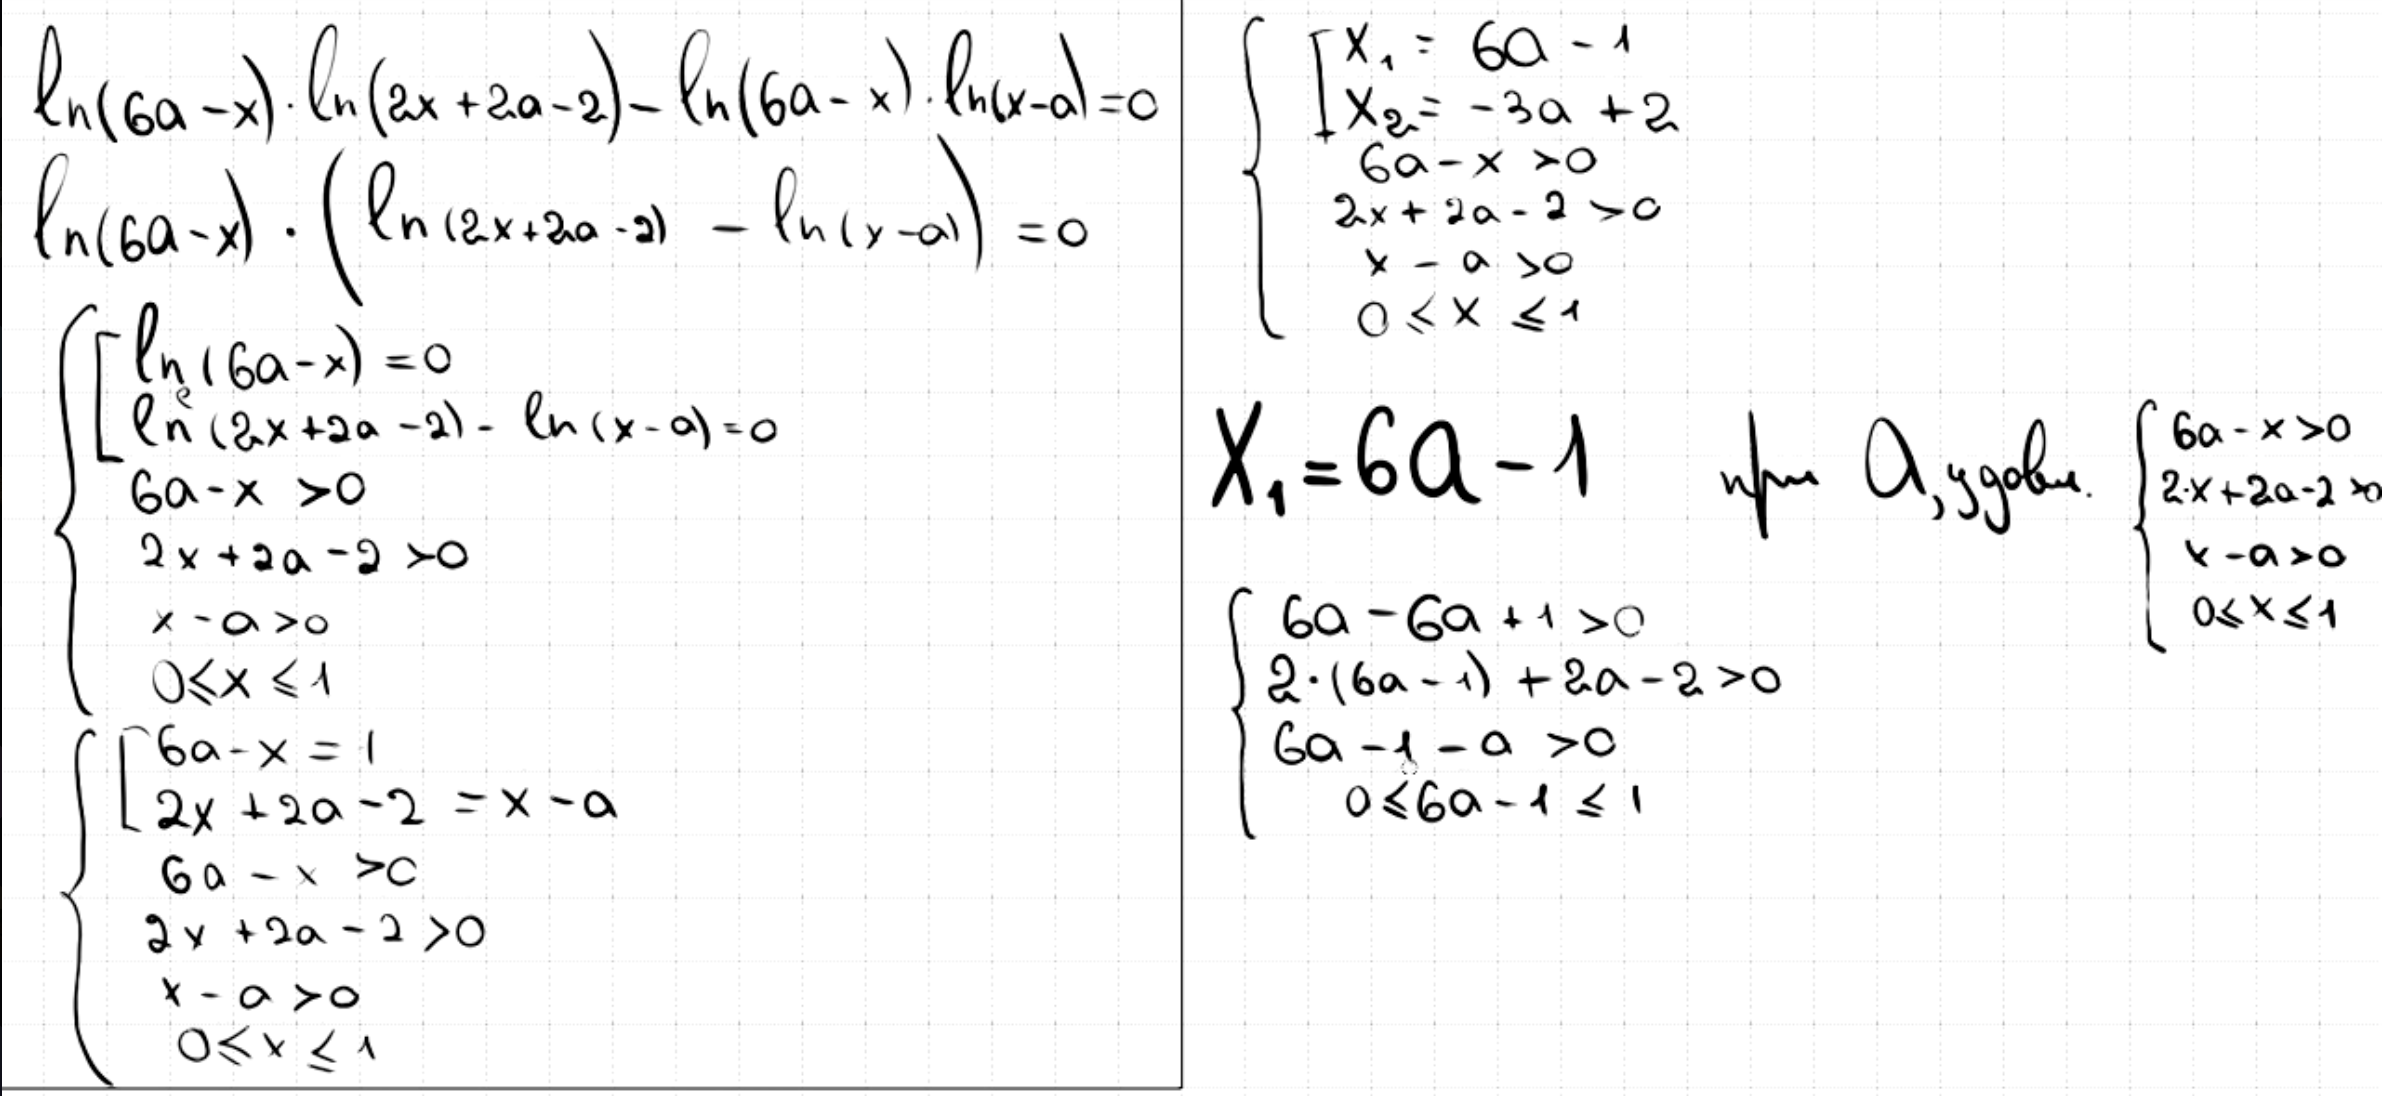 ln(6a-x)·ln(2x+2a-2)-ln(6a-x)·ln(x-a)=0
ln(6a-x)·(ln(2x+2a-2)-ln(x-a))=0
ln(6a-x)=0
ln(2x+2a-2)-ln(x-a)=0
6a-x>0
2x+2a-2>0
x-a>0
0≤x≤1
6a-x=1
2x+2a-2=x-a
6a-x>0
2x+2a-2>0
x-a>0
0≤x≤1
x₁=6a-1
x₂=-3a+2
6a-x>0
2x+2a-2>0
x-a>0
0≤x≤1
x₁=6a-1 при a, удовл.
6a-x>0
2·x+2a-2>0
x-a>0
0≤x≤1
6a-6a+1>0
2·(6a-1)+2a-2>0
6a-1-a>0
0≤6a-1≤1